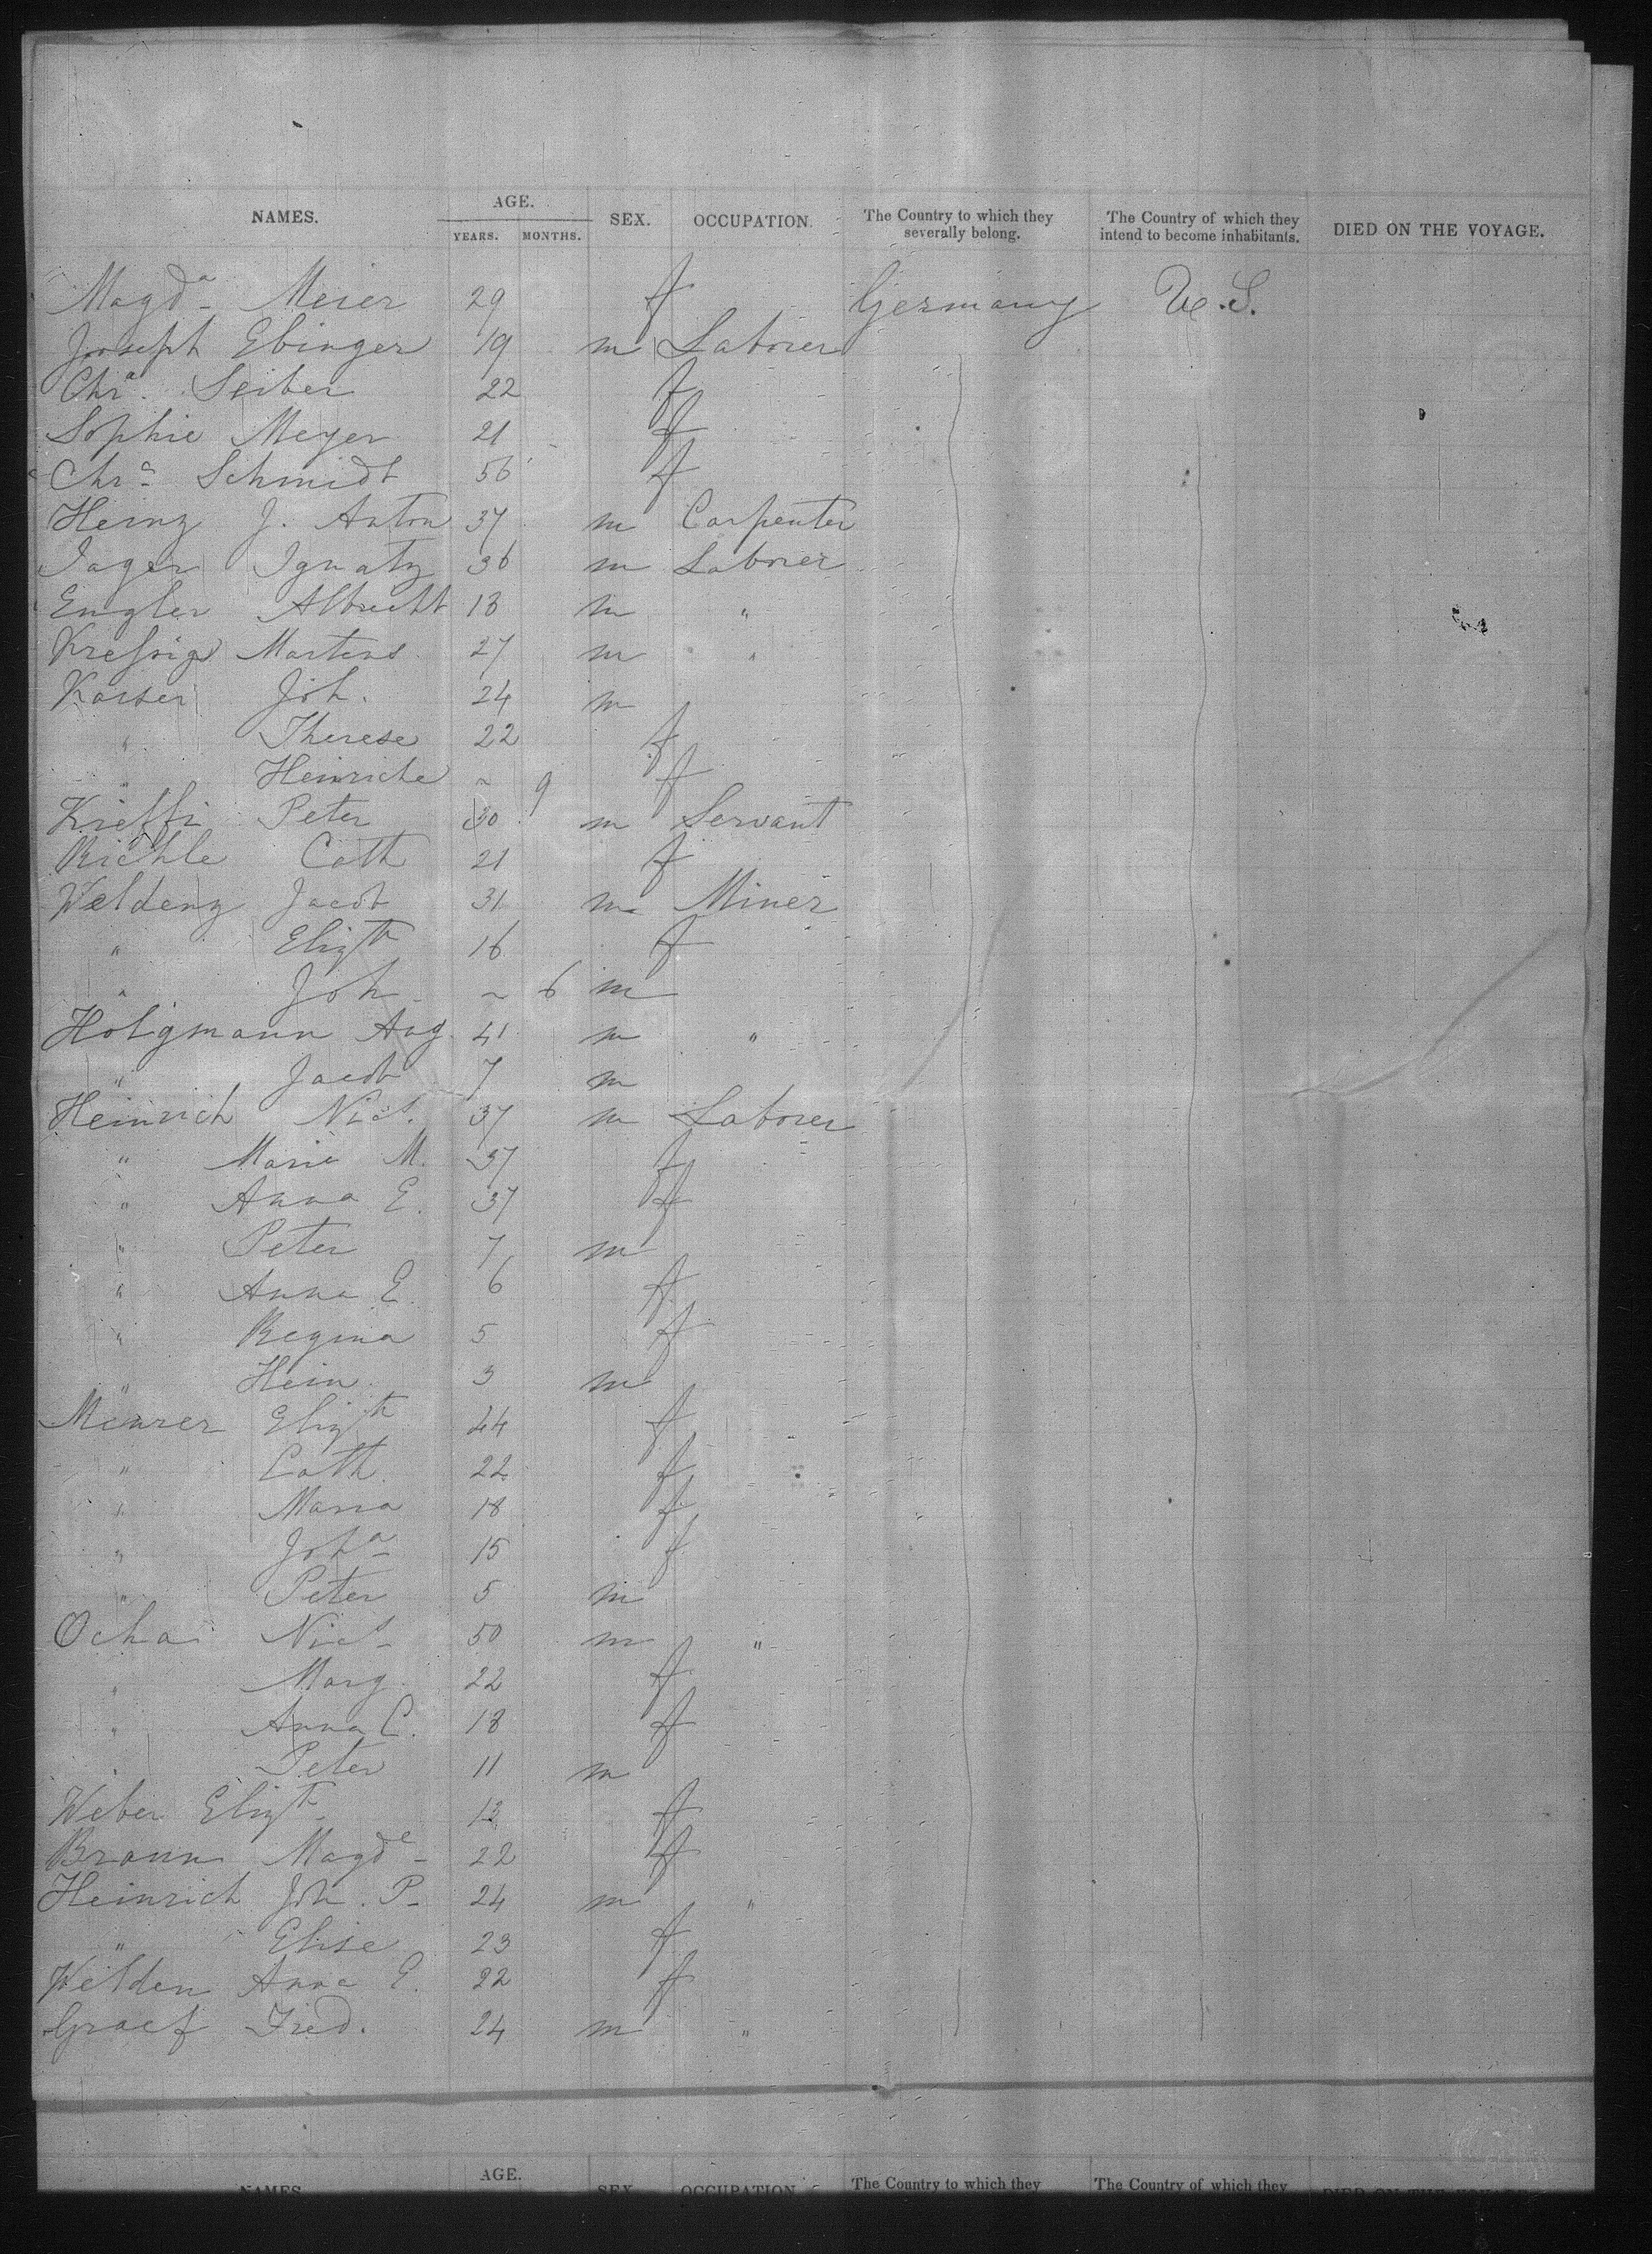 NAMES. AGE. YEARS. MONTHS. SEX. OCCUPATION. The Country to which they severally belong. The Country of which they intend to become inhabitants. DIED ON THE VOYAGE.
Magda Meier 29 f Germany U.S.
Joseph Ebinger 19 m Laborer
Chra. Seiber 22 f
Sophie Meyer 21 f
Chra Schmidt 56 f
Heinz J. Anton 37 m Carpenter
Jager Ignatz 36 m Laborer
Engler Albrecht 18 m "
Martens 27 m "
Kaiser Joh. 24 m
" Therese 22 f
" Heinriche ~ 9 f
Peter 30 m Servant
Richle Cath 21 f
Weldenz Jacob 31 m Miner
" Elizth 16 f
" Joh. ~ 6 m
Holzmann Aug. 41 m "
" Jacob 7 m
Heinrich Nics. 37 m Laborer
" Marie M. 37 f
" Anna E. 37 f
" Peter 7 m
" Anna E. 6 f
" Regina 5 f
" Hein. 3 m
Meurer Elizth 44 f
" Cath. 22 f
" Maria 18 f
" Joha 15 f
" Peter 5 m
Nics 50 m "
" Marg. 22 f
" Anna C. 18 f
" Peter 11 m
Weber Elizth 13 f
Braun Magde 22 f
Heinrich Joh. P. 24 m "
" Elise 23 f
Welden Anna E. 22 f
Graef Fred. 24 m "
NAMES. AGE. SEX. OCCUPATION. The Country to which they The Country of which they DIED ON THE VOYAGE.